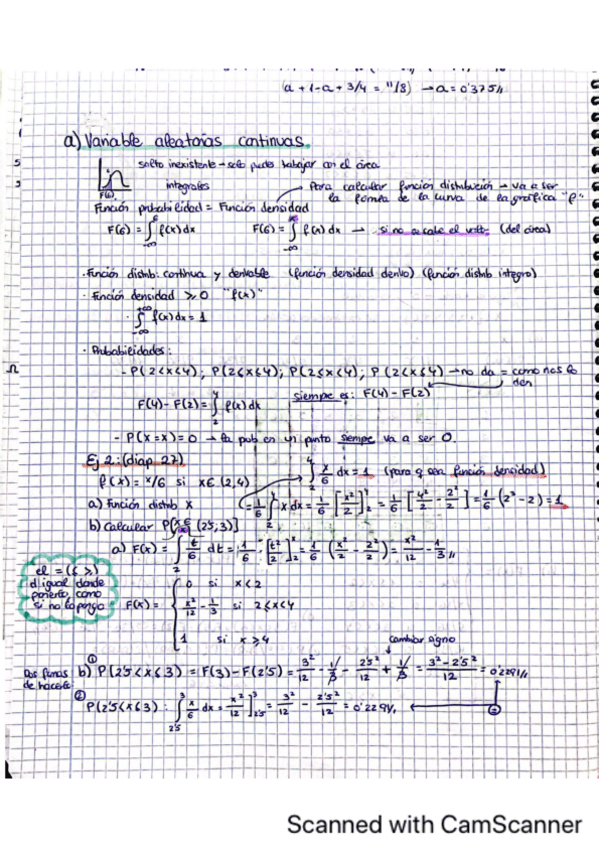 (a + 1-a + 3/4 = 11/8) → a = 0'375//
a) Variable aleatorias continuas.
salto inexistente → solo puedes trabajar con el área
integrales
F(6)
Para calcular función distribución → va a ser la forma de la curva de la gráfica "f"
Función probabilidad = Función densidad
F(6) = ∫_{-∞}^{6} f(x) dx
F(6) = ∫_{-∞} f(x) dx → si no acabe el valor (del área)
· Función distrib: continua y derivable (función densidad derivo) (función distrib integro)
· Función densidad ≥ 0 "f(x)"
· ∫_{-∞}^{+∞} f(x) dx = 1
· Probabilidades:
- P(2<x<4); P(2<x≤4); P(2≤x<4); P(2≤x≤4) → no da = como nos lo den
siempre es: F(4) - F(2)
F(4) - F(2) = ∫_2^4 f(x) dx
- P(X=x) = 0 → la prob en un punto siempre va a ser 0.
Ej 2: (diap. 27)
f(x) = x/6 si x∈(2,4)
∫_2^4 x/6 dx = 1 (para q sea función densidad)
a) Función distrib x
(= 1/6 ∫_2^4 x dx = 1/6 [x²/2]_2^4 = 1/6 [4²/2 - 2²/2] = 1/6 (2³ - 2) = 1
b) Calcular P[x∈(2'5,3)]
a) F(x) = ∫_2^x t/6 dt = 1/6 · [t²/2]_2^x = 1/6 (x²/2 - 2²/2) = x²/12 - 1/3 //
el = (≤ ≥) da igual donde ponerlo, como si no lo pongo
F(x) = { 0 si x<2
x²/12 - 1/3 si 2≤x<4
1 si x≥4
cambiar signo
Dos formas de hacerlo
b) ① P(2'5<x≤3) = F(3) - F(2'5) = 3²/12 - 1/3 - 2'5²/12 + 1/3 = 3²-2'5²/12 = 0'2291//
② P(2'5<x≤3) : ∫_{2'5}^3 x/6 dx = x²/12 ]_{2'5}^3 = 3²/12 - 2'5²/12 = 0'2291//
=
Scanned with CamScanner